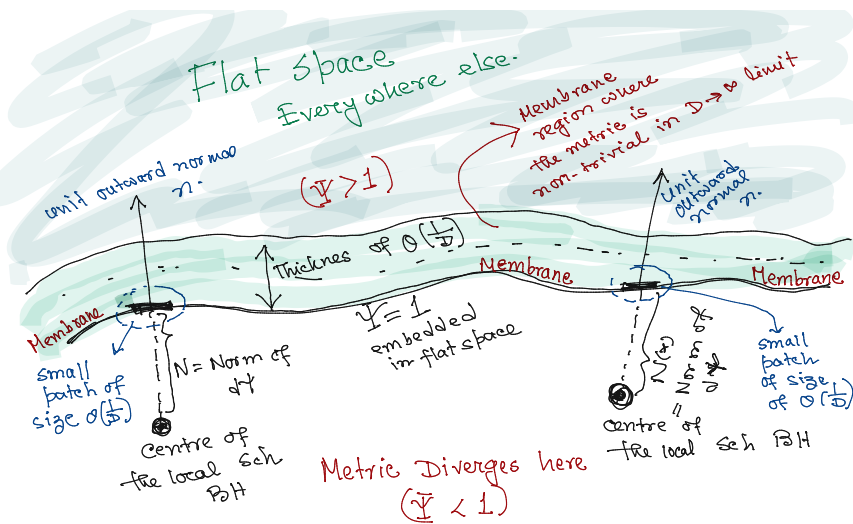 Flat Space
Everywhere else.
Membrane
region where
the metric is
non-trivial in D→∞ limit
unit outward normal
n.
(Ψ > 1)
unit
outward
normal
n.
Thicknes of O(1/D)
Membrane
Membrane
Membrane
Ψ = 1
embedded
in flat space
small
patch of
size O(1/D)
N = Norm of
dΨ
centre of
the local Sch
BH
small
patch
of size
of O(1/D)
centre of
the local Sch BH
Metric Diverges here
(Ψ < 1)